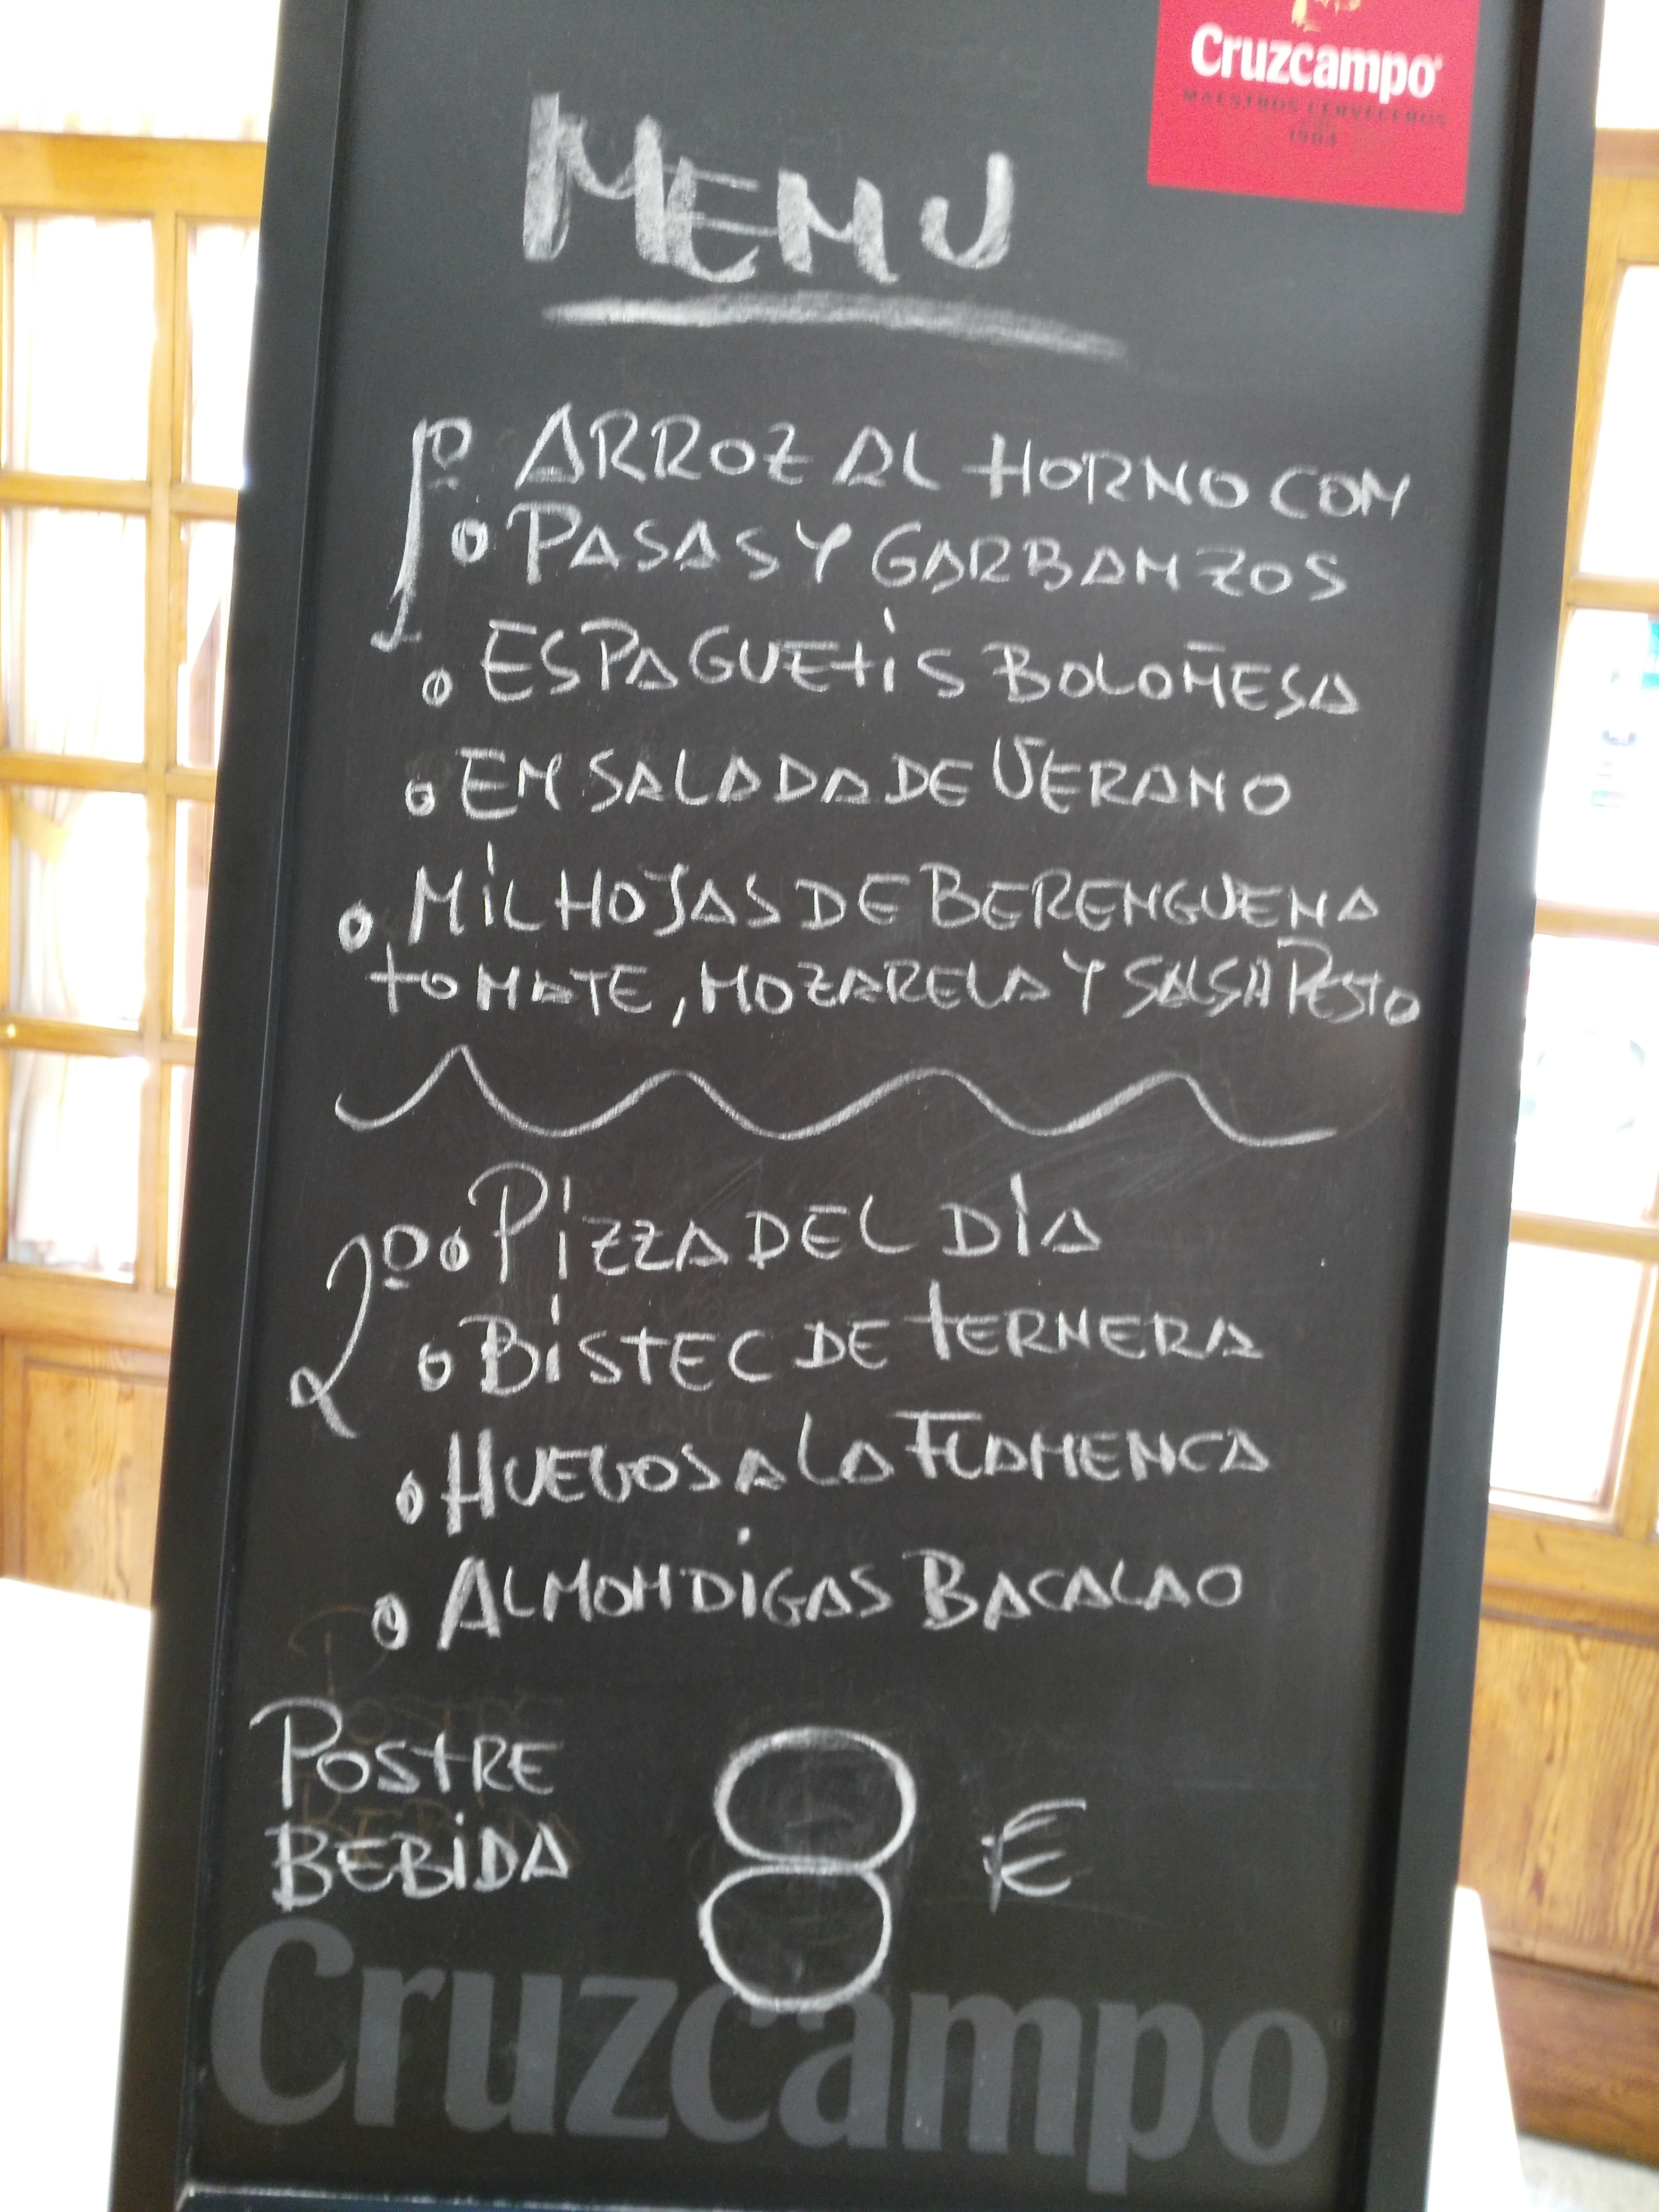 Cruzcampo
MAESTROS CERVECEROS
1904
MENU
1º ARROZ AL HORNO CON
PASAS Y GARBANZOS
ESPAGUETIS BOLOÑESA
ENSALADA DE VERANO
MILHOJAS DE BERENGUENA
TOMATE, MOZARELA Y SALSA PESTO
2º PIZZA DEL DÍA
BISTEC DE TERNERA
HUEVOS A LA FLAMENCA
ALMONDIGAS BACALAO
POSTRE
BEBIDA
8 €
Cruzcampo